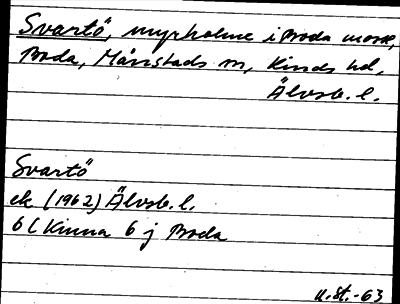 Svartö, myrholme i Boda mosse,
Boda, Månstads sn, Kinds hd,
Älvsb. l.
Svartö
ek (1962) Älvsb. l.
6C Kinna 6 j Boda
U. St. -63